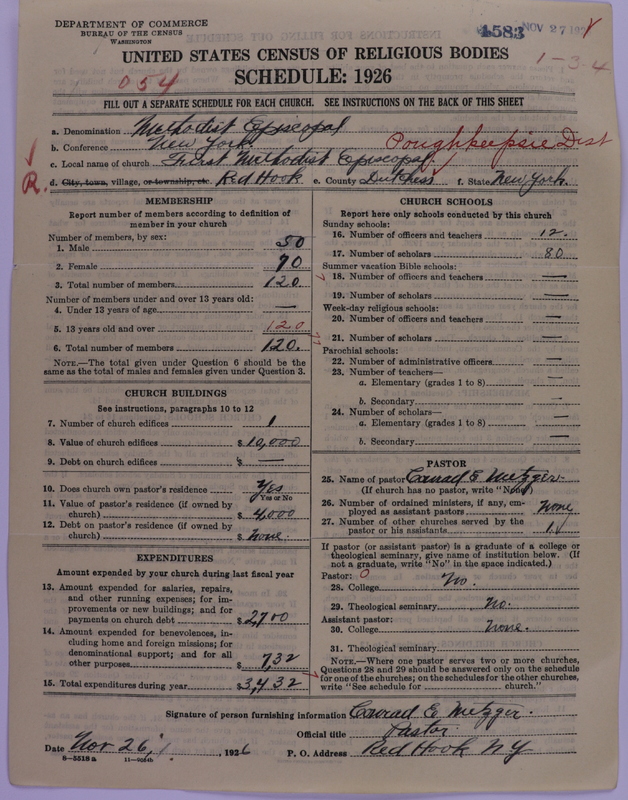 DEPARTMENT OF COMMERCE
BUREAU OF THE CENSUS
WASHINGTON
4583 NOV 27 192
1-3-4
UNITED STATES CENSUS OF RELIGIOUS BODIES
SCHEDULE: 1926
054
FILL OUT A SEPARATE SCHEDULE FOR EACH CHURCH. SEE INSTRUCTIONS ON THE BACK OF THIS SHEET
a. Denomination Methodist Episcopal
b. Conference New York Poughkeepsie Dist
c. Local name of church First Methodist Episcopal
R.
d. City, town, village, or township, etc. Red Hook e. County Dutchess f. State New York.
MEMBERSHIP
Report number of members according to definition of
member in your church
Number of members, by sex:
1. Male 50
2. Female 70
3. Total number of members 120
Number of members under and over 13 years old:
4. Under 13 years of age —
5. 13 years old and over 120
6. Total number of members 120.
NOTE.—The total given under Question 6 should be
same as the total of males and females given under Question 3.
CHURCH BUILDINGS
See instructions, paragraphs 10 to 12
7. Number of church edifices 1
8. Value of church edifices $10,000
9. Debt on church edifices $ —
10. Does church own pastor's residence Yes
Yes or No
11. Value of pastor's residence (if owned by
church) $4,000
12. Debt on pastor's residence (if owned by
church) $ None.
EXPENDITURES
Amount expended by your church during last fiscal year
13. Amount expended for salaries, repairs,
and other running expenses; for im-
provements or new buildings; and for
payments on church debt $2,700
14. Amount expended for benevolences, in-
cluding home and foreign missions; for
denominational support; and for all
other purposes $ 732
15. Total expenditures during year $3,432
CHURCH SCHOOLS
Report here only schools conducted by this church
Sunday schools:
16. Number of officers and teachers 12.
17. Number of scholars 80
Summer vacation Bible schools:
18. Number of officers and teachers —
19. Number of scholars —
Week-day religious schools:
20. Number of officers and teachers —
21. Number of scholars —
Parochial schools:
22. Number of administrative officers —
23. Number of teachers—
a. Elementary (grades 1 to 8) —
b. Secondary —
24. Number of scholars—
a. Elementary (grades 1 to 8) —
b. Secondary —
PASTOR
25. Name of pastor Conrad E Metzger.
(If church has no pastor, write "None")
26. Number of ordained ministers, if any, em-
ployed as assistant pastors None
27. Number of other churches served by the
pastor or his assistants 1
If pastor (or assistant pastor) is a graduate of a college or
theological seminary, give name of institution below. (If
not a graduate, write "No" in the space indicated.)
Pastor: 0
28. College No.
29. Theological seminary No.
Assistant pastor:
30. College None.
31. Theological seminary
NOTE.—Where one pastor serves two or more churches,
Questions 28 and 29 should be answered only on the schedule
for one of the churches; on the schedules for the other churches,
write "See schedule for church."
Signature of person furnishing information Conrad E Metzger.
Official title Pastor
Date Nov 26, 1926 P. O. Address Red Hook NY
8-5518 a 11-9064b